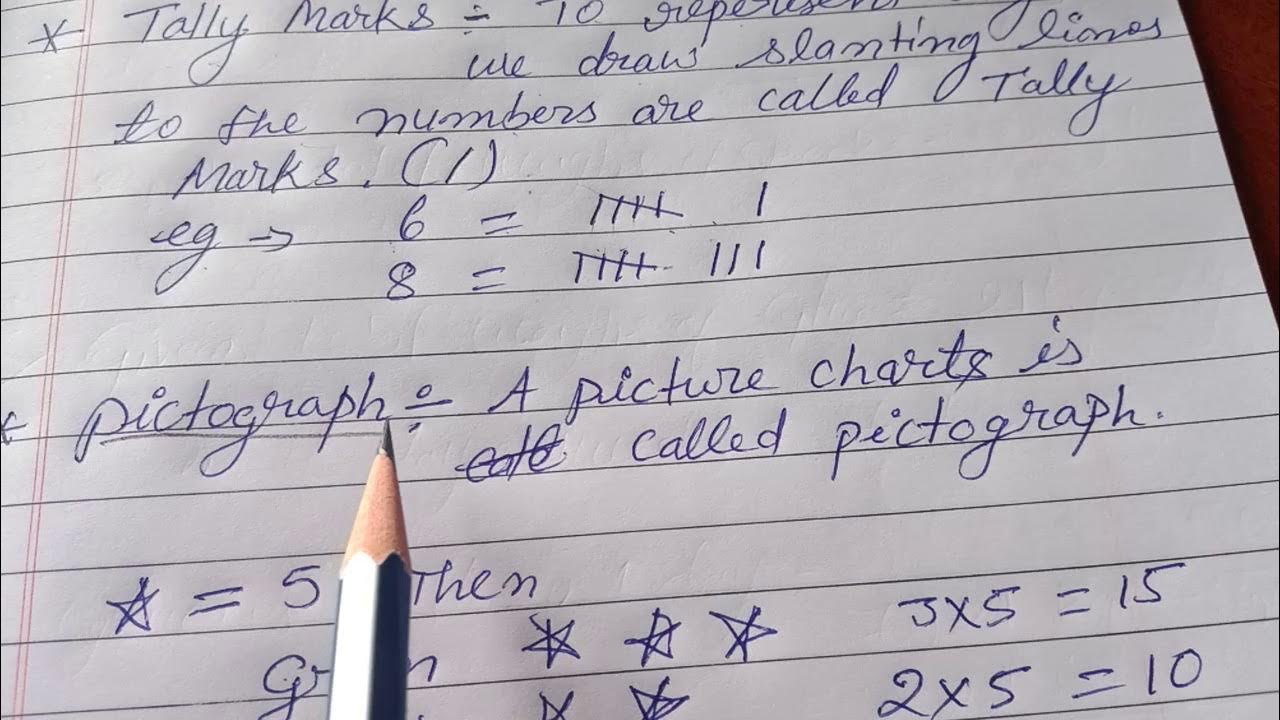 * Tally Marks ÷ To
we draw slanting lines
to the numbers are called Tally
Marks. (/)
eg → 6 = 𝍸 |
8 = 𝍸 |||
pictograph ÷ A picture charts is
called pictograph.
☆ = 5 Then
☆ ☆ ☆ 3×5 = 15
☆ ☆ 2×5 = 10